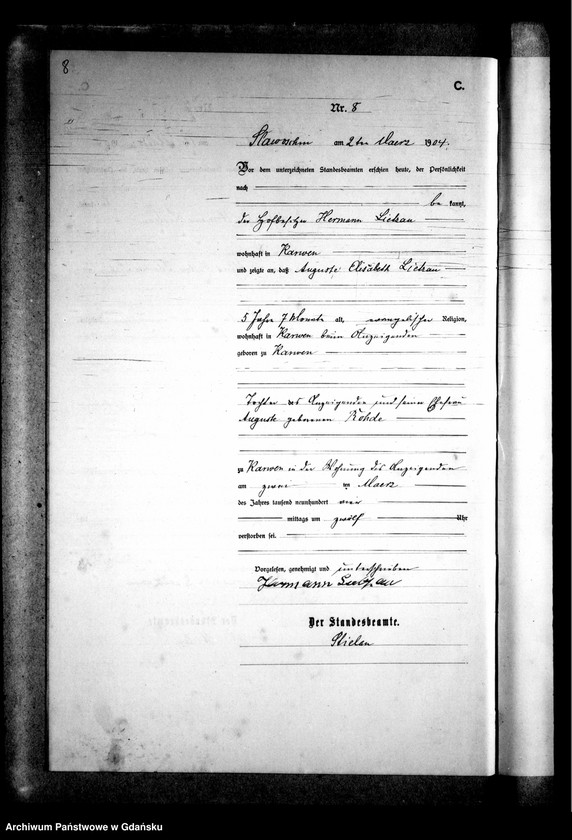 8
C.
Nr. 8
Slawoschin am 2ten Maerz 1904.
Vor dem unterzeichneten Standesbeamten erschien heute, der Persönlichkeit
nach
be kannt,
der Hofbesitzer Hermann Lietzau
wohnhaft in Karwen
und zeigte an, daß Auguste Elisabeth Lietzau
5 Jahre 7 Monate alt, evangelischer Religion,
wohnhaft in Karwen beim Anzeigenden
geboren zu Karwen
Tochter des Anzeigenden und seiner Ehefrau
Auguste geborenen Rohde
zu Karwen in der Wohnung des Anzeigenden
am zwei ten Maerz
des Jahres tausend neunhundert vier
mittags um zwölf Uhr
verstorben sei.
Vorgelesen, genehmigt und unterschrieben
Hermann Lietzau
Der Standesbeamte.
Archiwum Państwowe w Gdańsku